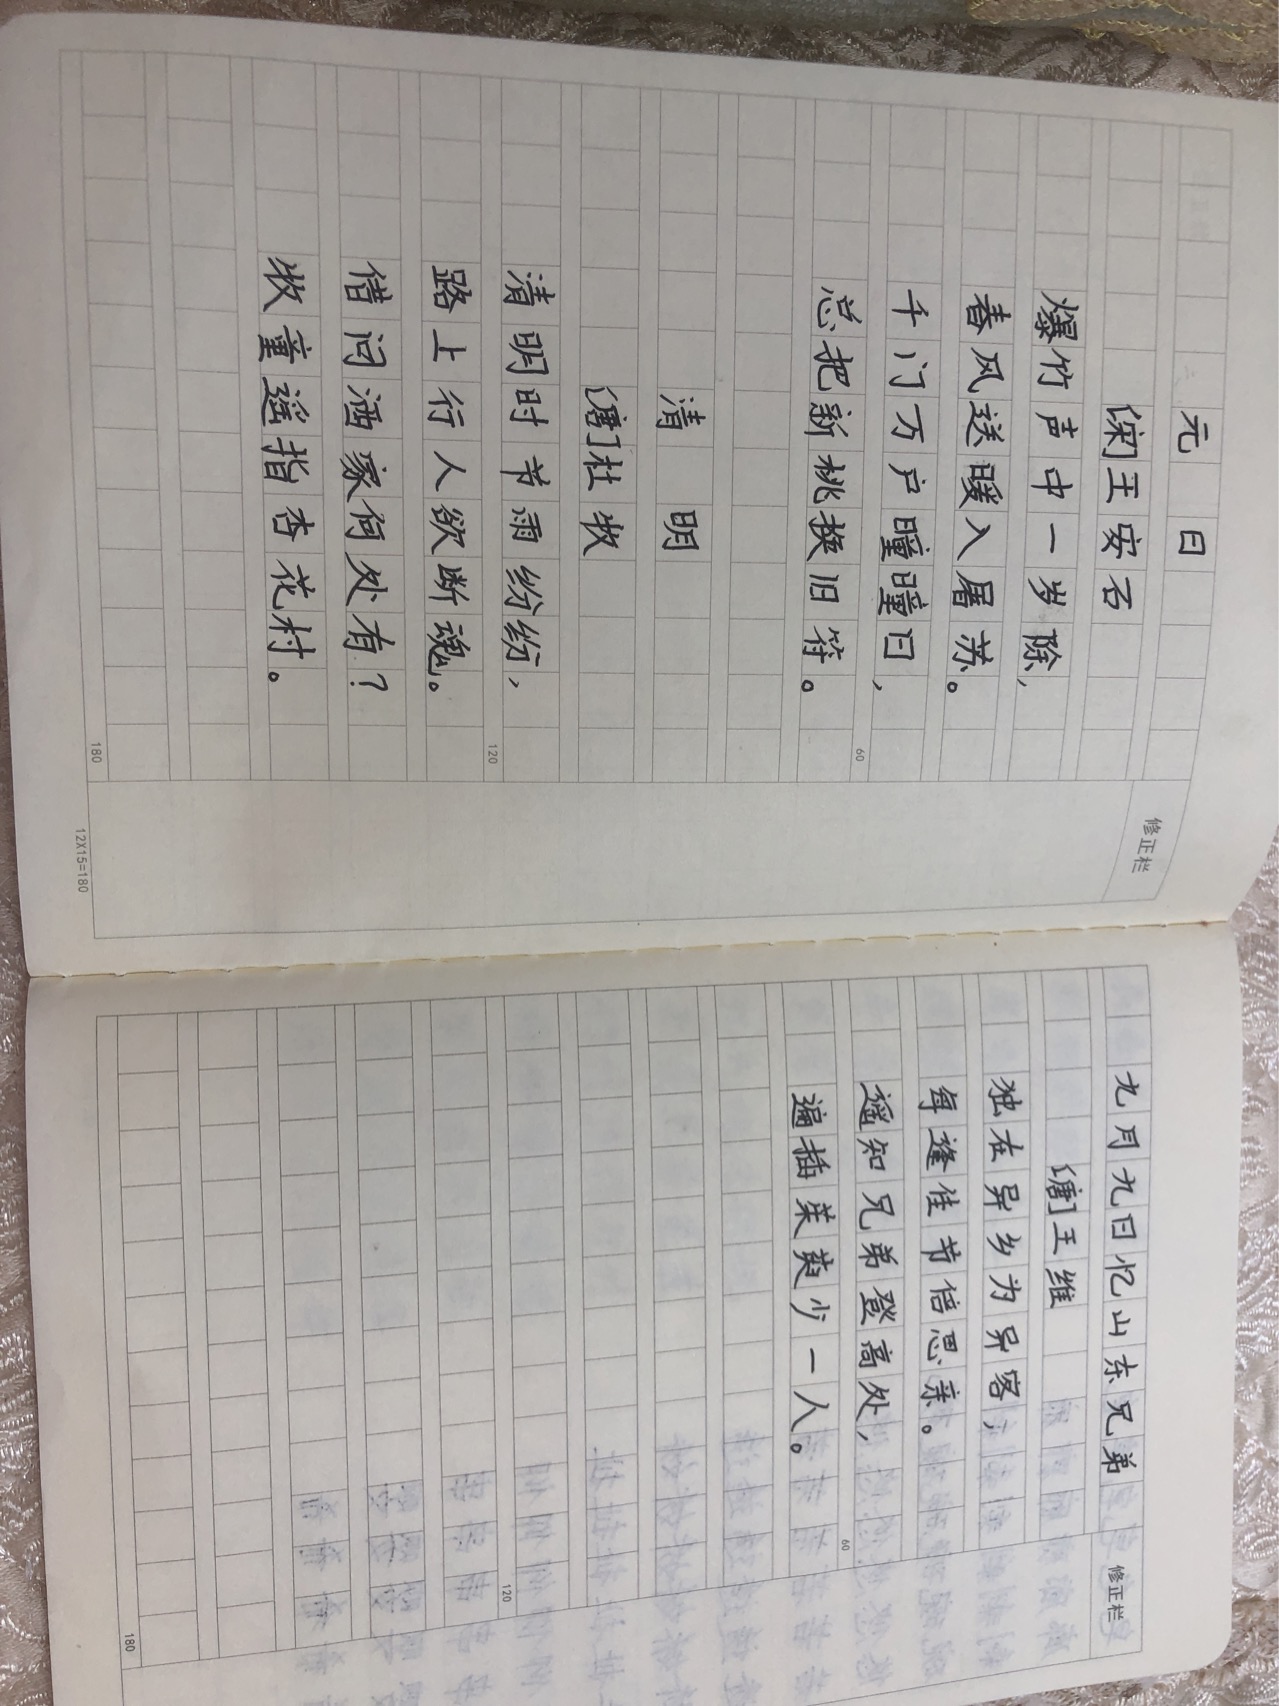 元日
[宋]王安石
爆竹声中一岁除，
春风送暖入屠苏。
千门万户曈曈日，
总把新桃换旧符。
60
清明
[唐]杜牧
清明时节雨纷纷，
路上行人欲断魂。
120
借问酒家何处有？
牧童遥指杏花村。
180
修正栏
12X15=180
九月九日忆山东兄弟
[唐]王维
独在异乡为异客，
每逢佳节倍思亲。
遥知兄弟登高处，
遍插茱萸少一人。
60
120
180
修正栏